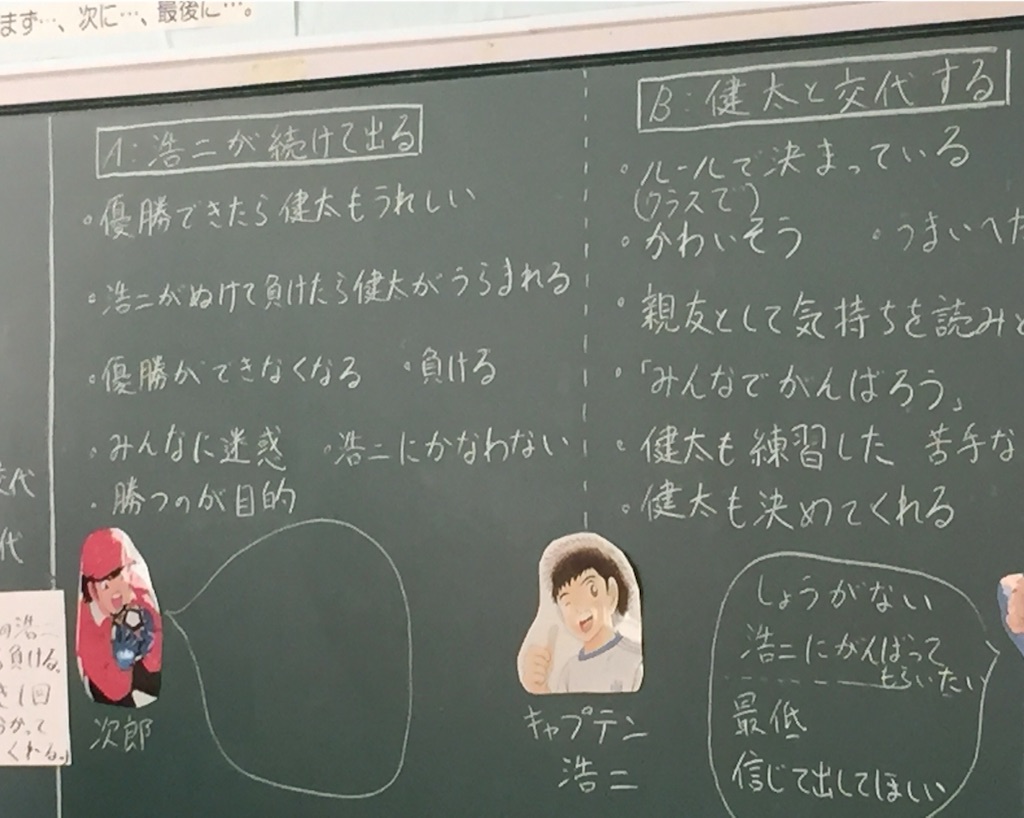 まず…、次に…、最後に…。
A:浩二が続けて出る
・優勝できたら健太もうれしい
・浩二がぬけて負けたら健太がうらまれる
・優勝ができなくなる ・負ける
・みんなに迷惑 ・浩二にかなわない
・勝つのが目的
次郎
キャプテン
浩二
B:健太と交代する
・ルールで決まっている
(クラスで)
・かわいそう ・うまいへた
・親友として気持ちを読みと
・「みんなでがんばろう」
・健太も練習した 苦手な
・健太も決めてくれる
しょうがない
浩二にがんばって
もらいたい
最低
信じて出してほしい
交代
代
の浩二
負ける。
き1回
かって
くれる。」